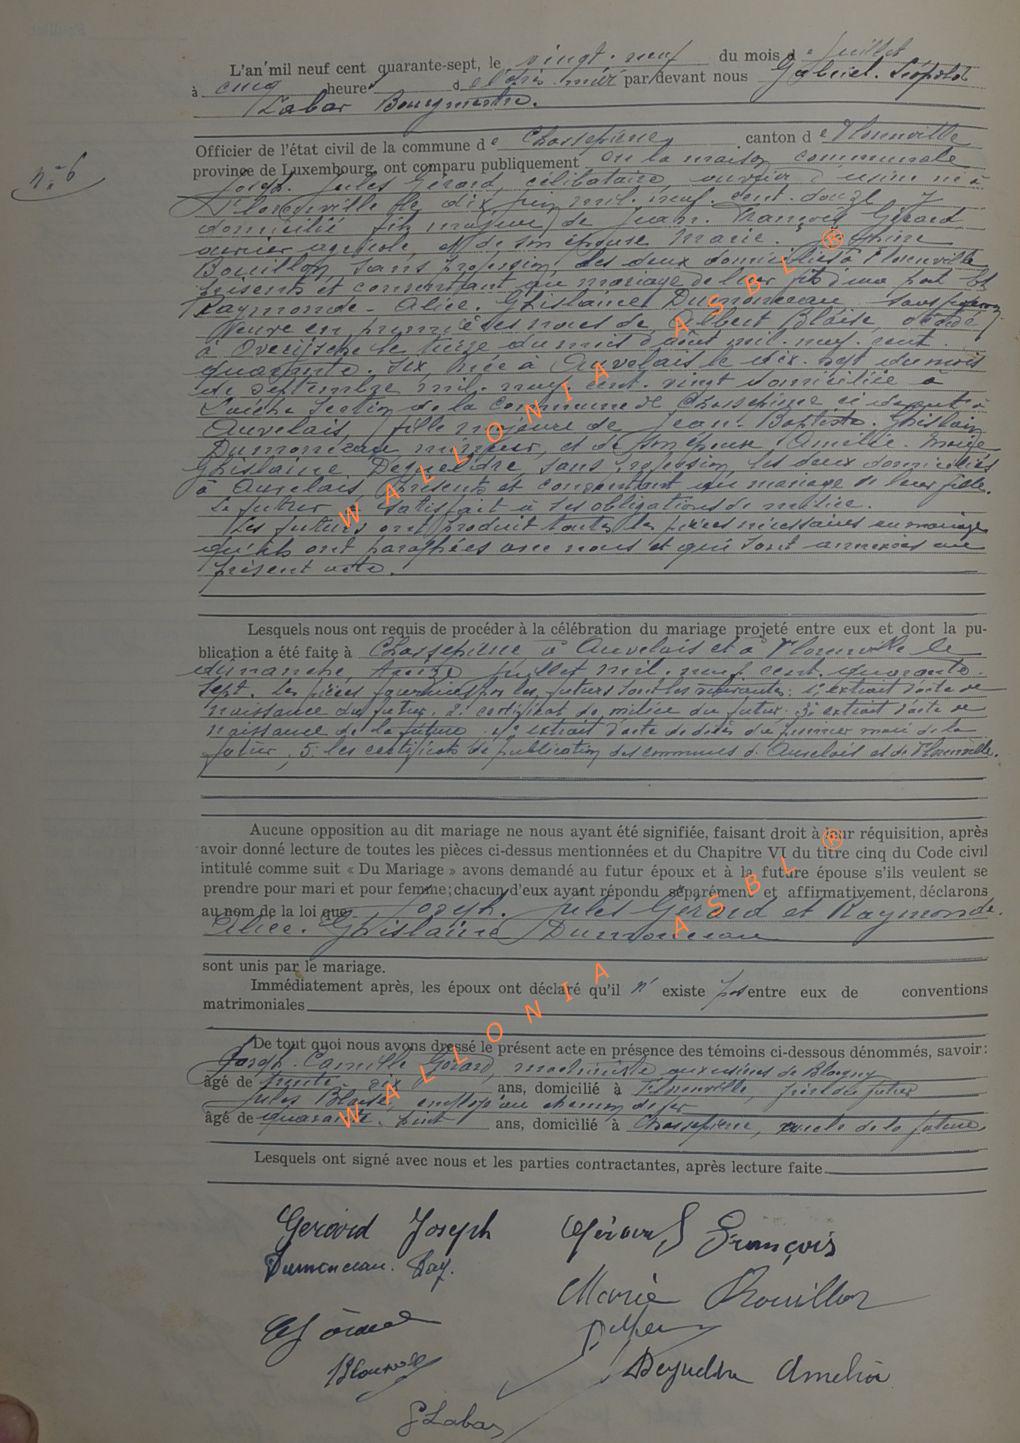 L'an mil neuf cent quarante-sept, le vingt-neuf du mois de juillet
à cinq heures de l'après-midi par devant nous Gabriel-Léopold
Labar Bourgmestre.
Officier de l'état civil de la commune de Chassepierre canton de Florenville
province de Luxembourg, ont comparu publiquement en la maison communale
n° 6
Joseph-Jules Gérard, célibataire, ouvrier d'usine né à
Florenville le dix juin mil neuf cent douze y
domicilié fils majeur de Jean-François Gérard
ouvrier agricole, et de son épouse Marie-Joséphine
Bouillon, sans profession, les deux domiciliés à Florenville
présents et consentant au mariage de leur fils d'une part Et
Raymonde-Alice-Ghislaine Dumonceau sans profession
Veuve en premières noces de Albert Blaise, décédé
à Overijssche le treize du mois d'août mil neuf cent
quarante-six, née à Auvelais le dix-sept du mois
de septembre mil neuf cent vingt domiciliée à
Laiche Section de la commune de Chassepierre ci devant à
Auvelais, fille majeure de Jean-Baptiste-Ghislain
Dumonceau mineur, et de son épouse Amélie
Ghislaine Dequeldre, sans profession, les deux domiciliés
à Auvelais, présents et consentant au mariage de leur fille.
Le futur a satisfait à ses obligations de milice.
Les futurs ont produit toutes les pièces nécessaires au mariage
qu'ils ont paraphées avec nous et qui sont annexées au
présent acte.
Lesquels nous ont requis de procéder à la célébration du mariage projeté entre eux et dont la pu-
blication a été faite à Chassepierre à Auvelais et à Florenville le
dimanche treize juillet mil neuf cent quarante-
sept. Les pièces fournies par les futurs sont les suivantes: 1° extrait d'acte de
naissance du futur, 2° certificat de milice du futur, 3° extrait d'acte de
naissance de la future 4° extrait d'acte de décès du premier mari de la
future, 5° les certificats de publication des communes d'Auvelais et de Florenville.
Aucune opposition au dit mariage ne nous ayant été signifiée, faisant droit à leur réquisition, après
avoir donné lecture de toutes les pièces ci-dessus mentionnées et du Chapitre VI du titre cinq du Code civil
intitulé comme suit « Du Mariage » avons demandé au futur époux et à la future épouse s'ils veulent se
prendre pour mari et pour femme; chacun d'eux ayant répondu séparément et affirmativement, déclarons
au nom de la loi que Joseph-Jules Gérard et Raymonde-
Alice-Ghislaine Dumonceau
sont unis par le mariage.
Immédiatement après, les époux ont déclaré qu'il n' existe pas entre eux de conventions
matrimoniales
De tout quoi nous avons dressé le présent acte en présence des témoins ci-dessous dénommés, savoir:
Joseph-Camille Gérard, machiniste aux usines de Blagny
âgé de trente-six ans, domicilié à Florenville, frère du futur
Jules Blaise, employé au chemin de fer
âgé de quarante-huit ans, domicilié à Chassepierre, oncle de la future.
Lesquels ont signé avec nous et les parties contractantes, après lecture faite
Gérard Joseph
Gérard François
Dumonceau. Ray.
Marie Bouillon
Gérard
Dequeldre Amélie
G Labar
WALLONIA ASBL ®
WALLONIA ASBL ®